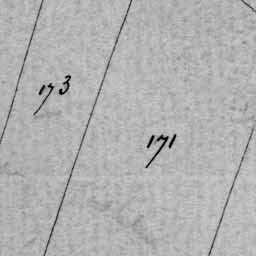 173
171